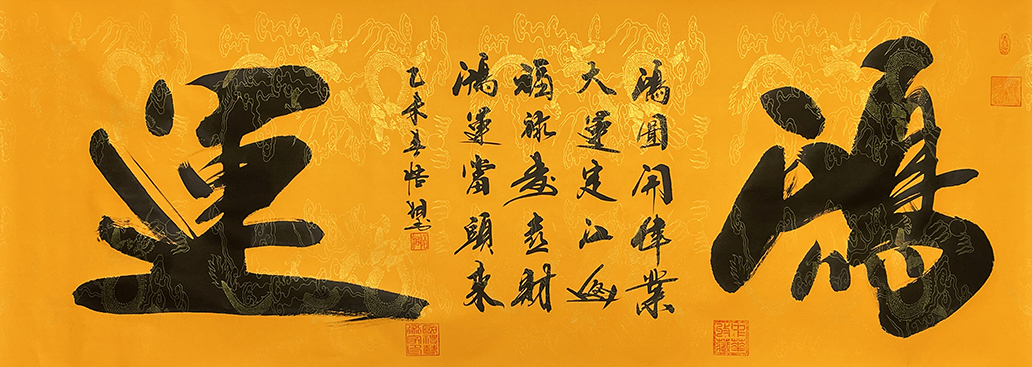 鴻
鴻圖開偉業
大運定江海
福祿壽喜財
鴻運當頭來
乙未春悟
運